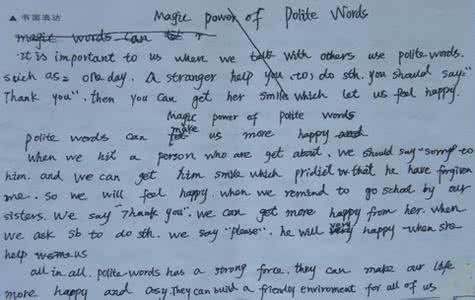 ▲ 书面表达
Magic power of Polite Words
magic words can
It is important to us when we talk with others use polite words.
such as: one day. A stranger help you to do sth. you should say "
Thank you". then you can get her smile which let us feel happy.
Magic power of Polite words
polite words can make us more happy and
when we hit a person who are get about. we should say "sorry" to
him. and we can get him smile which pridict that he have forgiven
me. so we will feel happy. when we remind to go school by our
sisters. We say "Thank you". we can get more happy from her. when
we ask sb to do sth. we say "please". he will very happy when she
help us
all in all. polite words has a strong force. they can make our life
more happy and They can build a friendly enviroment for all of us